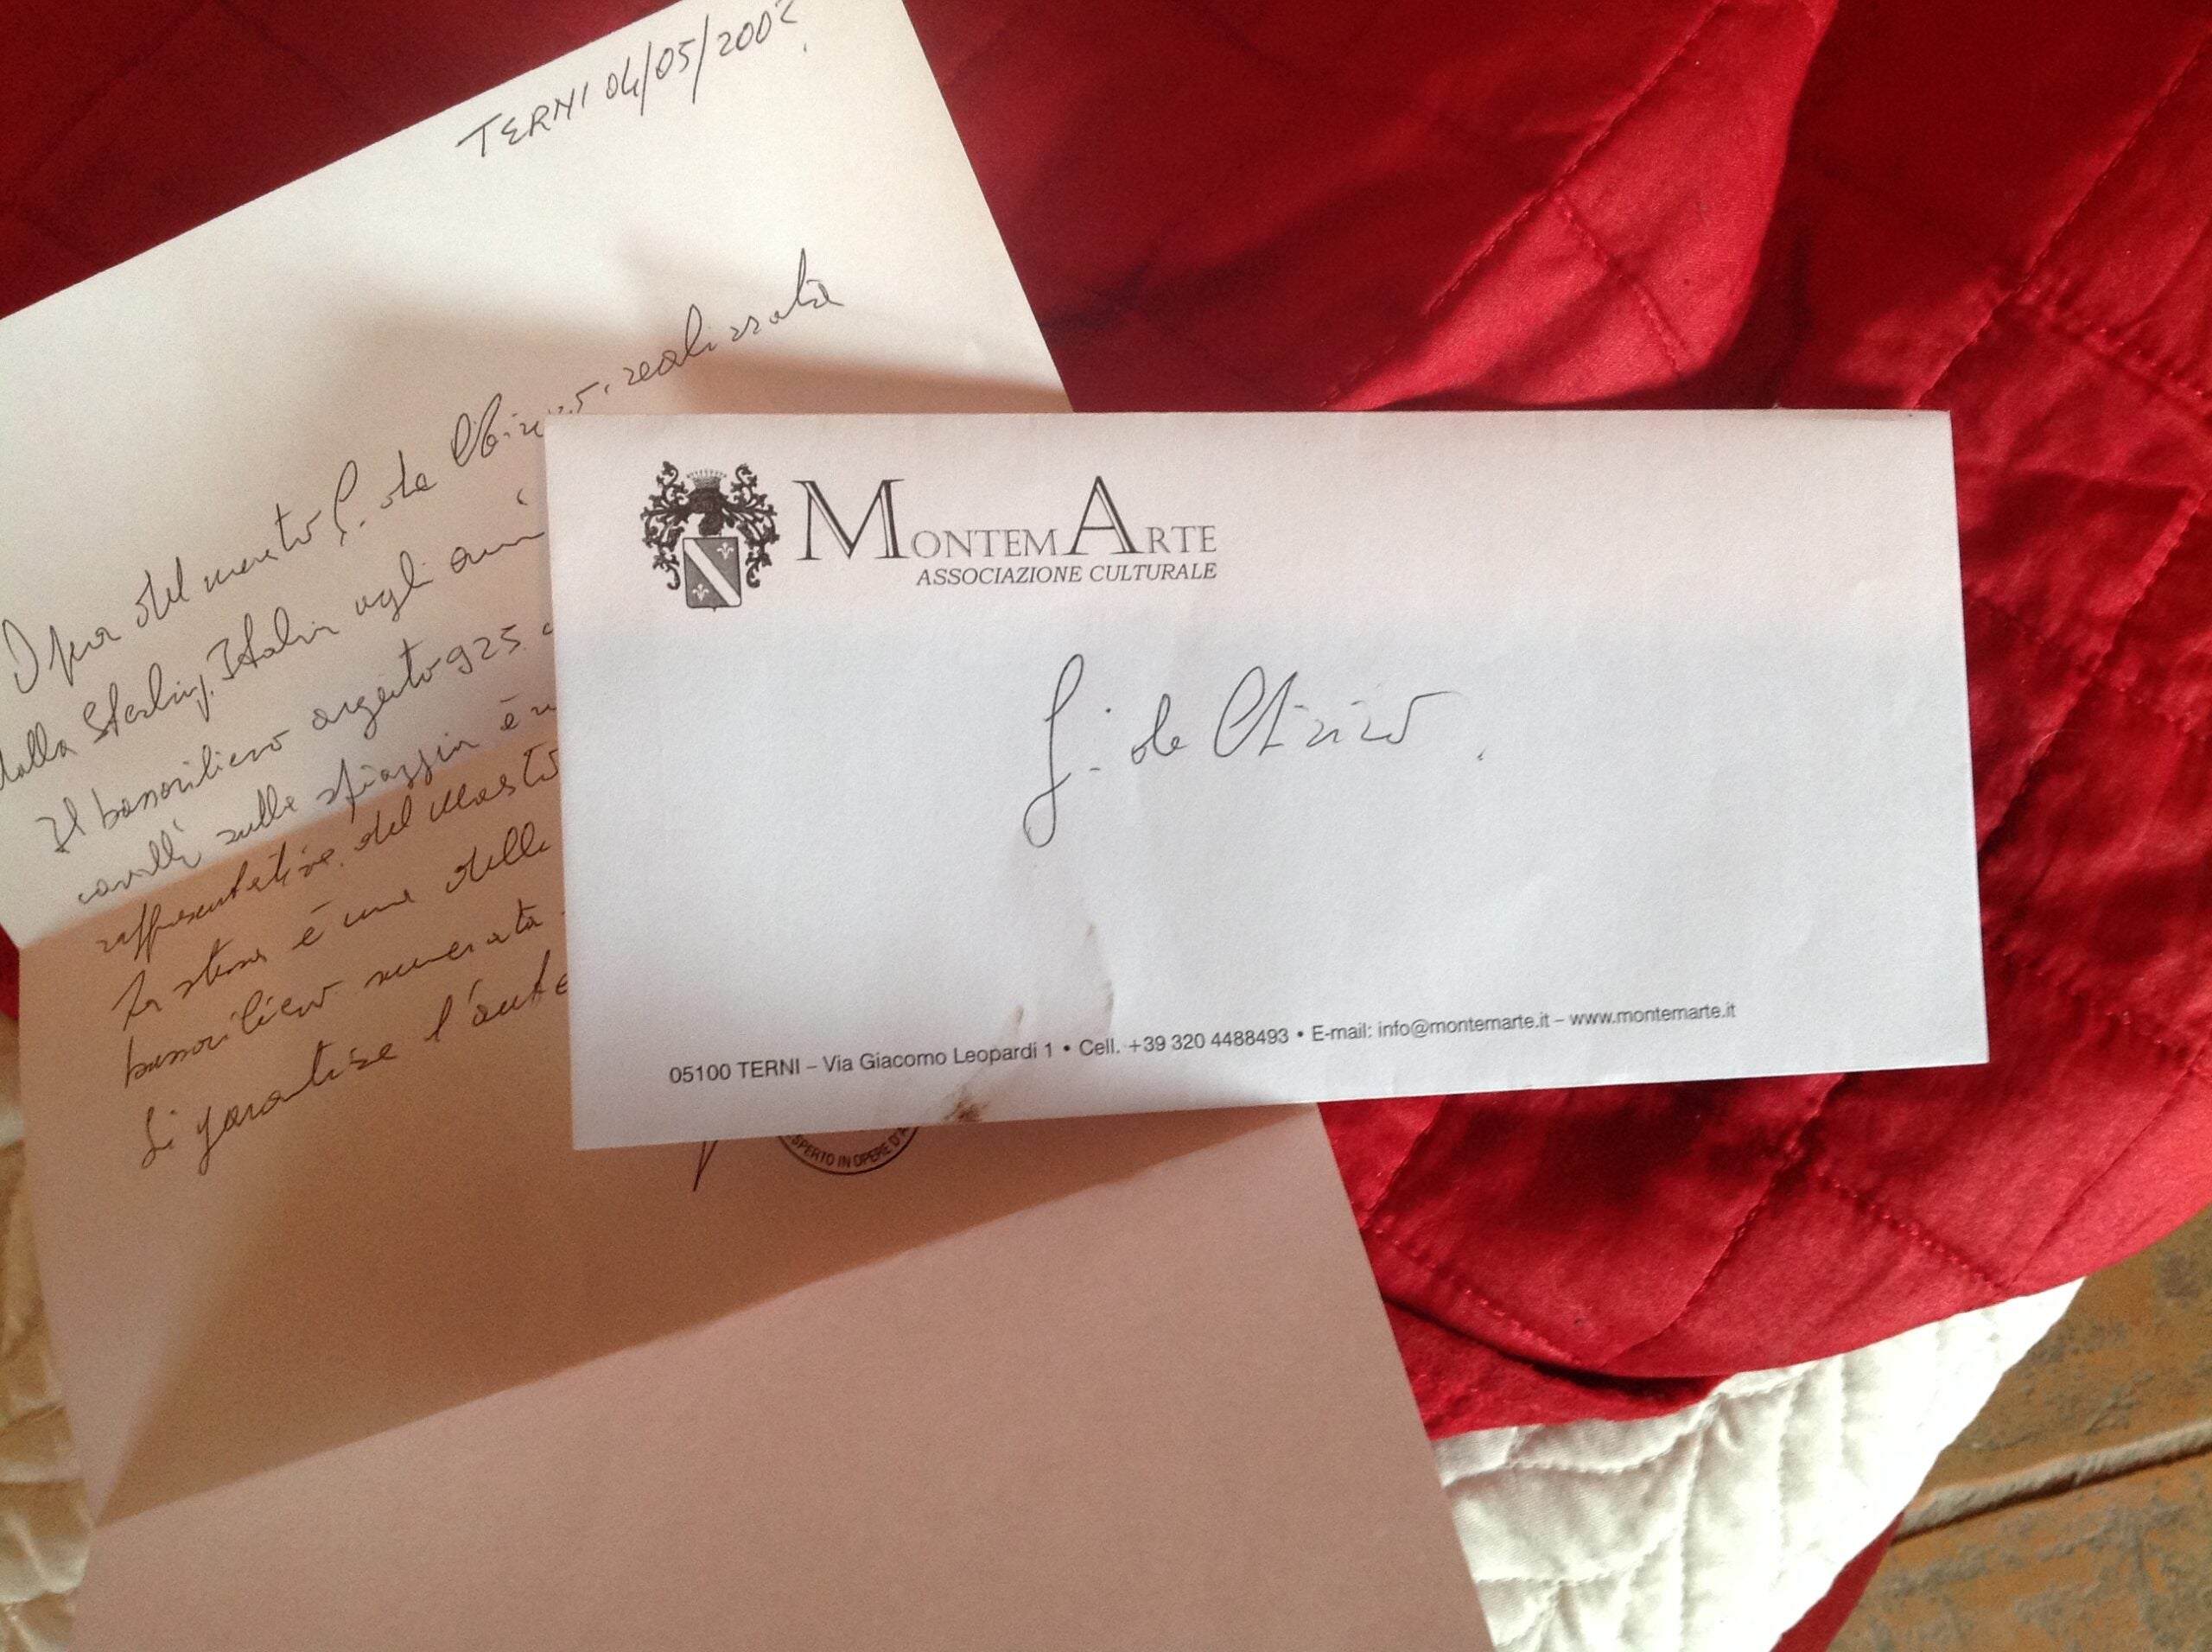 TERNI 04/05/2002
Opera del maestro G. de Chirico. realizzata
dalla Sterling Italia agli anni
Il bassorilievo argento 925
cavalli sulla spiaggia è
rappresentativa del Maestro
la stessa è una delle
bassorilievo numerata
Si garantisce l'aute
SPERTO IN OPERE D'A
MONTEMARTE
ASSOCIAZIONE CULTURALE
G. de Chirico.
05100 TERNI – Via Giacomo Leopardi 1 • Cell. +39 320 4488493 • E-mail: info@montemarte.it – www.montemarte.it